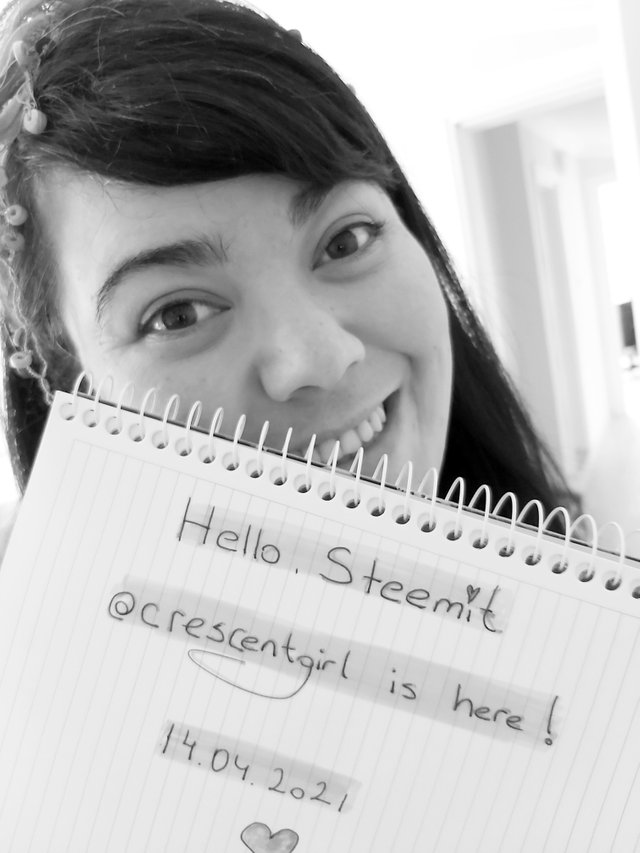 Hello, Steemit
@crescentgirl is here!
14.04.2021